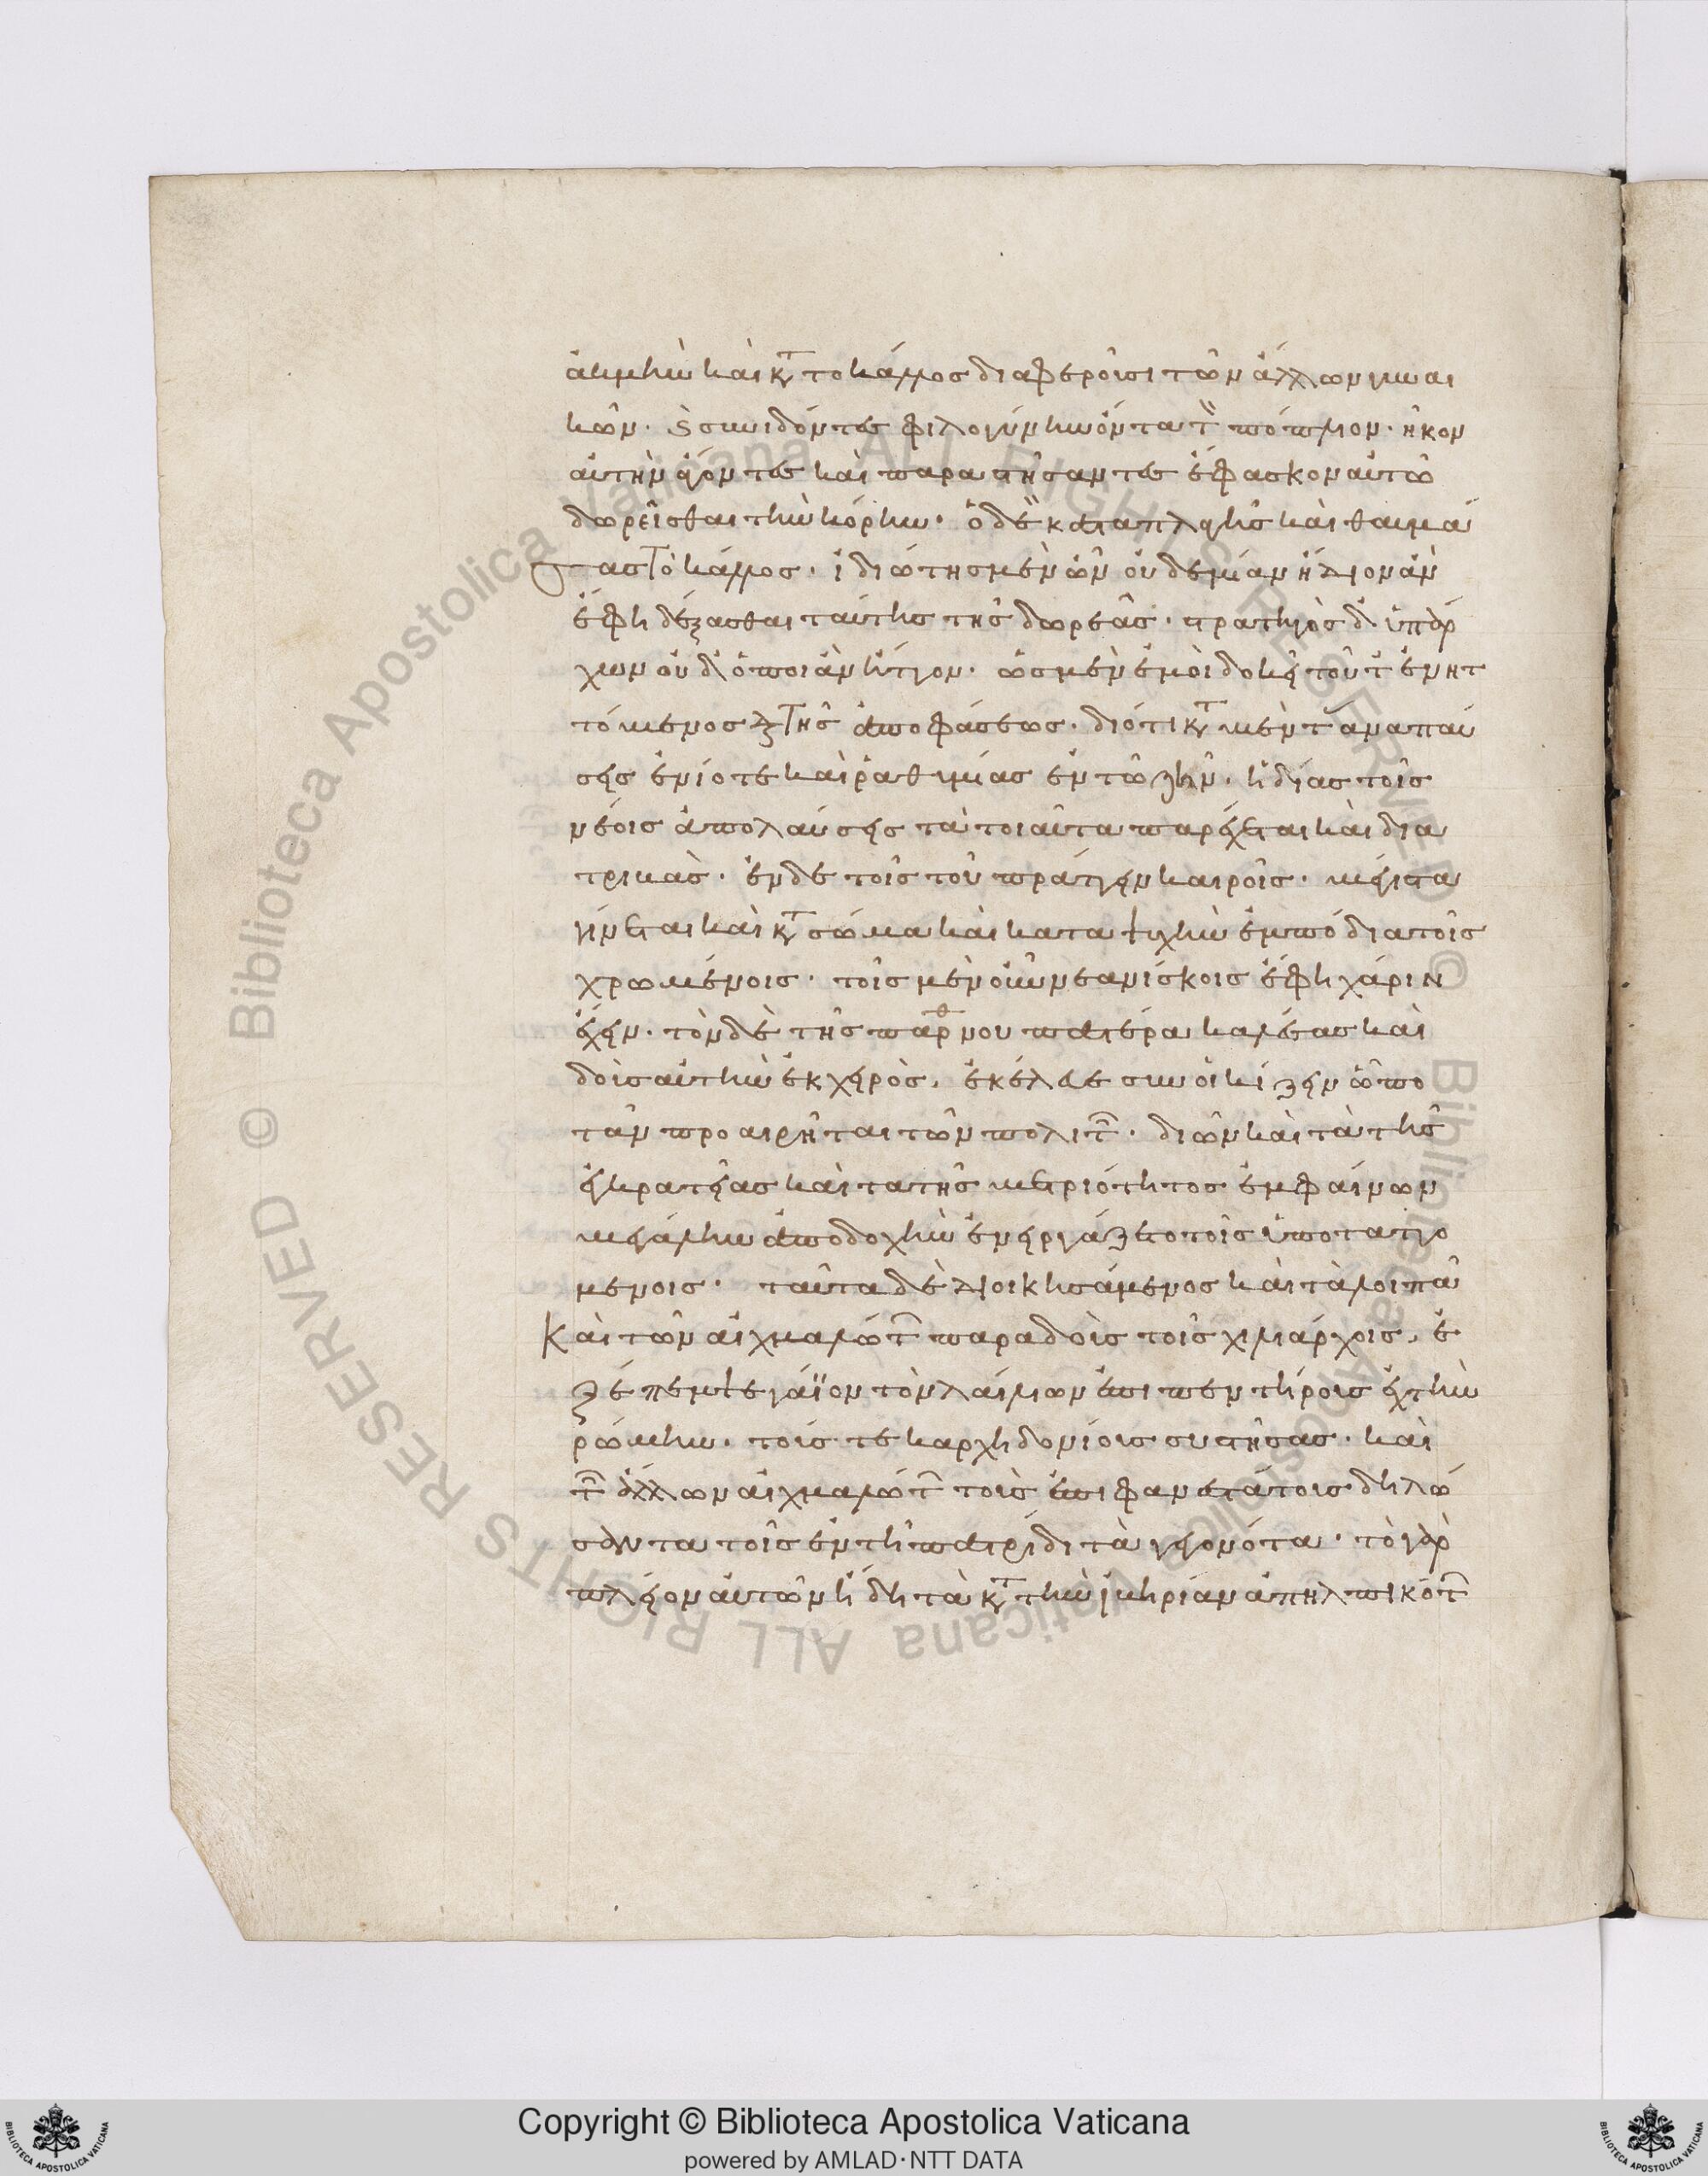 ἀκμὴν καὶ κτ το κάλλος διαφεροῦσι τῶν ἄλλων γυναι
κῶν. ϛ συνιδόντες φιλογύνην ὄντα τ πόπλιον. ἧκον
αὐτὴν ἄγοντες καὶ παραστήσαντες ἔφασκον αὐτῶ
δωρεῖσθαι τὴν κόρην. ὁ δὲ καταπλαγεὶς καὶ θαυμά
σας τὸ κάλλος. ἰδιώτης μὲν ὢν οὐδεμίαν ἥδιον ἂν
ἔφη δέξασθαι ταύτης τῆς δωρεᾶς. στρατηγὸς δ' ὑπάρ
χων οὐδ' ὁποιαν ἧττον. ὡς μὲν ἐμοὶ δοκεῖ τοῦτ αἰνιτ
τόμενος δ τῆς ἀποφάσεως. διότι κτ μὲν τ ἀναπαύ
σεις ἐνίοτε καὶ ῥαθυμίας ἐν τῶ ζῆν. ἡδίστας τοῖς
νέοις ἀπολαύσεις τὰ τοιαῦτα παρέχεται καὶ δια
τριβάς. ἐν δε τοῖς τοῦ πράττειν καιροῖς. μέγιστα
γίνεται καὶ κτ σῶμα καὶ κατα ψυχὴν ἐμπόδια τοῖς
χρωμένοις. τοῖς μὲν οὖν νεανίσκοις ἔφη χάριν
ἔχειν. τὸν δὲ τῆς παρθνου πατέρα καλέσας καὶ
δοὺς αὐτὴν ἐκ χειρὸς. ἐκέλευε συνοικίζειν ᾧ πο
τ' ἂν προαιρῆται τῶν πολιτ. δι' ὧν καὶ τὰ τῆς
ἐγκρατείας καὶ τα τῆς μετριότητος ἐμφαίνων
μεγάλην ἀποδοχὴν ἐνειργάζετο τοῖς ὑποταττο
μένοις. ταῦτα δὲ διοικησάμενος καὶ τὰ λοιπὰ
Καὶ τῶν αἰχμαλώτ παραδοὺς τοῖς χιλιάρχοις. ἐ
ξέπεμψε γάϊον τὸν λαίλιων ἐπι πεντήροις εἰς τὴν
ῥώμην. τοῖς τε καρχηδονίοις συστήσας. καὶ
τ ἄλλων αἰχμαλώτ τοὺς ἐπιφανεστάτοις δηλώ
σοντα τοῖς ἐν τῆ πατρίδι τὰ γεγονότα. τὸ γὰρ
πλεῖον αὐτῶν ἤδη τὰ κτ τὴν ἰβηρίαν ἀπηλπικότ